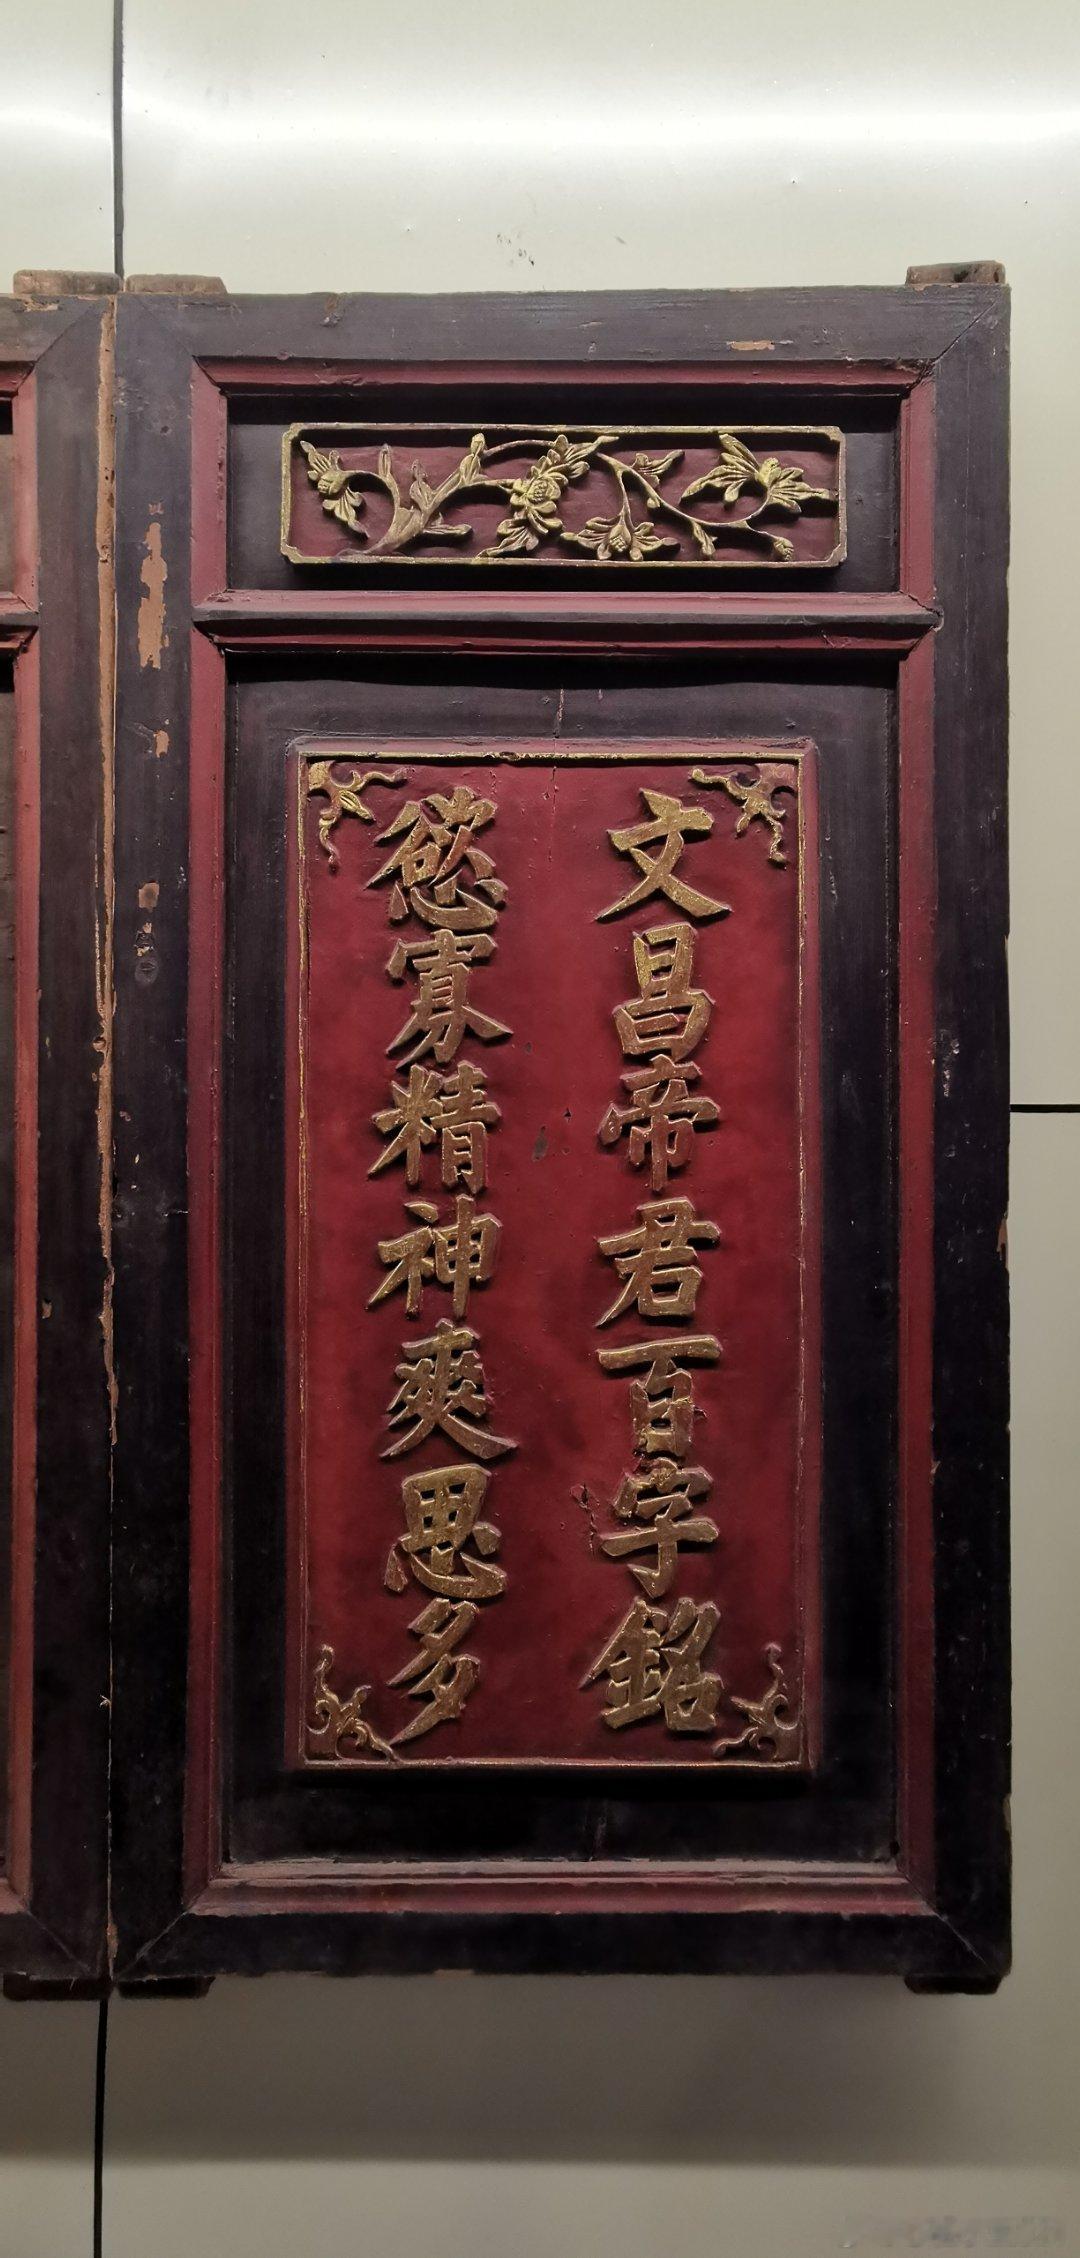 文昌帝君百字銘
慾寡精神爽思多